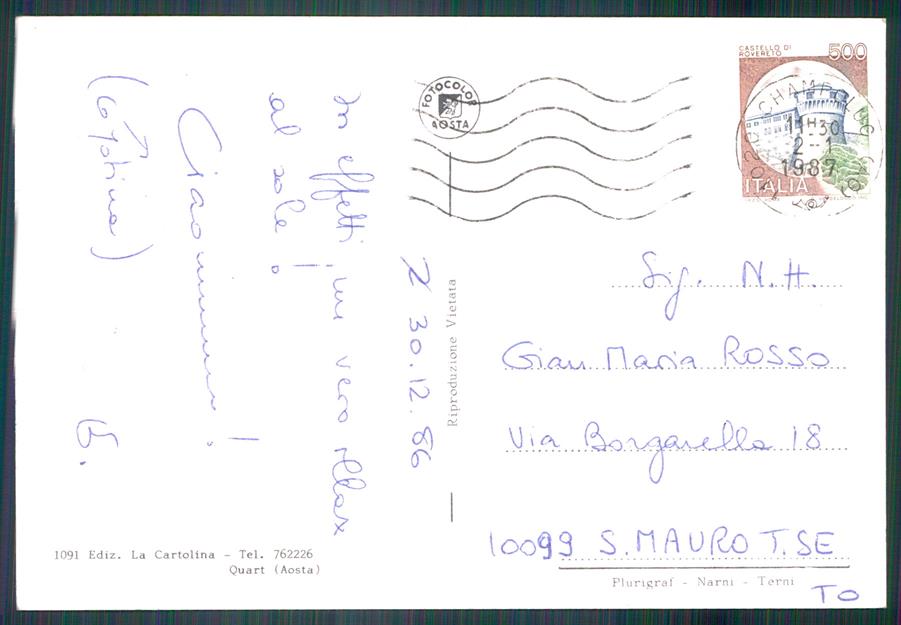 Z 30.12.86
In effetti, un vero relax
al sole!
Ciaoooooo!
G.
FOTOCOLOR
AOSTA
Riproduzione Vietata
CASTELLO DI
ROVERETO
500
ITALIA
CHAMPOLUC
11-30
2-1
1987
Sig. N.H.
Gian Maria ROSSO
Via Borgarello 18
10099 S. MAURO T.SE
TO
1091 Ediz. La Cartolina - Tel. 762226
Quart (Aosta)
Plurigraf - Narni - Terni